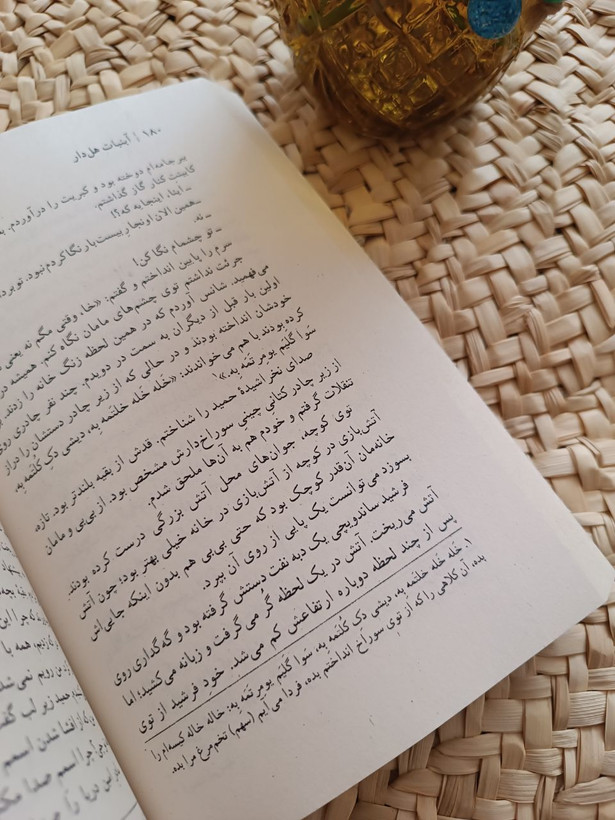 ۱۸۰ | آبنبات هل‌دار
پیرجامه‌ام دوخته بود و کبریت را درآوردم.
کابینت کنار گاز گذاشتم.
ـ ایناه، اینجایه که؟!
ـ همین الان اونجار بیست بار نگا کردم نبود، تو برد
ـ نه.
ـ تو چشمام نگا کن!
سرم را پایین انداختم و گفتم: «خا، وقتی مگم نه یعنی
جرئت نداشتم توی چشم‌های مامان نگاه کنم. همیشه در
می‌فهمید. شانس آوردم که در همین لحظه زنگ خانه را زدند.
اولین بار قبل از دیگران به سمت در دویدم. چند نفر چادری روی
خودشان انداخته بودند و در حالی که از زیر چادر دستشان را دراز
کرده بودند با هم می‌خواندند: «خَله خَله خلتَمه یِه، دیشی دکِ کُلتَمه یِه،
سَوا گَلَیَم یومِر تَمَه یِه.»۱
صدای نخراشیدهٔ حمید را شناختم. قدش از بقیه بلندتر بود. تازه،
از زیر چادر کتانیِ چینیِ سوراخ‌دارش مشخص بود. از بی‌بی و مامان
تنقلات گرفتم و خودم هم به آن‌ها ملحق شدم.
توی کوچه، جوان‌های محل آتش بزرگی درست کرده بودند.
آتش‌بازی در کوچه از آتش‌بازی در خانه خیلی بهتر بود؛ چون آتش
خانه‌مان آن‌قدر کوچک بود که حتی بی‌بی هم بدون اینکه جایی‌اش
بسوزد می‌توانست یک پایی از روی آن بپرد.
فرشید ساندویچی یک دبه نفت دستش گرفته بود و گه‌گداری روی
آتش می‌ریخت. آتش در یک لحظه گُر می‌گرفت و زبانه می‌کشید؛ اما
پس از چند لحظه دوباره ارتفاعش کم می‌شد. خودِ فرشید از توی
۱. خَله خَله خلتَمه یه، دیشی دکِ کُلتَمه یه، سَوا گَلَیَم یومِر تَمَه یه: خاله خاله کیسه‌ام را
بده، آن کلاهی را که از تویِ سوراخ انداختم بده، فردا می آیم (سهم) تخم‌مرغ مرا بده.